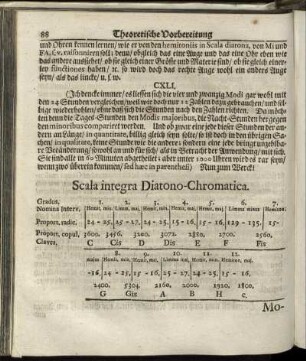 88 Theoretische Vorbereitung
und Ohren kennen lernen, wie er von den hemitoniis in Scala diatona, von Mi und
Fa, &c. raisonniren soll: denn, obgleich das eine Auge und das eine Ohr eben wie
das andere aussiehet, ob sie gleich einer Größe und Materie sind, ob sie gleich einer-
ley functiones haben, rc. so wird doch das rechte Auge wohl ein anders Auge
seyn, als das lincke, u. s. w.
CXLI.
(Ich dencke immer, es liessen sich die vier und zwantzig Modi gar wohl mit
den 24 Stunden vergleichen, weil wir doch nur 12 Zahlen dazu gebrauchen, und sel-
bige wiederhohlen, ohne daß sich die Stunden nach den Zahlen richten. Da möch-
ten denn die Tages-Stunden den Modis majoribus, die Nacht-Stunden hergegen
den minoribus comparirt werden. Und ob zwar eine jede dieser Stunden der an-
dern an Länge, in quantitate, völlig gleich seyn solte, so ist doch in den übrigen Sa-
chen, in qualitate, keine wie die andere, sondern eine jede bringt unglaubli-
che Veränderung, sowohl an und für sich, als in Betracht der Anwendung, mit sich.
Sie sind alle in 60 Minuten abgetheilet; aber unter 1000 Uhren wird es rar seyn,
wenn zwo überein kommen, sed hæc in parenthesi) Nun zum Werck!
Scala integra Diatono-Chromatica.
Gradus, 1. 2. 3. 4. 5. 6. 7.
Nomina Interv.
Proport. radic. 24 - 25 - 27, 24 - 25, 15 - 16, 15 - 16, 129 - 135, 15-
Proport. copul. 3600. 3456. 3200. 3072. 2880. 2700. 2560.
Claves, C Cis D Dis E F Fis
8. 9. 10. 11. 12.
-16, 24 - 25, 15 - 16, 25 - 27, 24 - 25, 15 - 16.
2400. 2304. 2160. 2000. 1920. 1800.
G Gis A B H c.
Mo-